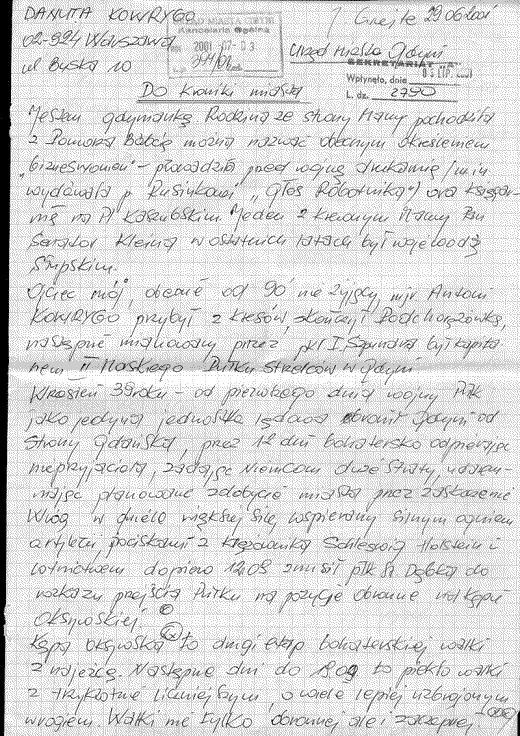 DANUTA KOWRYGO
Gdynia 29.06.2001
02-924 Warszawa
ul Byska 10
URZĄD MIASTA GDYNI
Kancelaria Ogólna
2001 -07- 03
Urząd Miasta Gdyni
SEKRETARIAT "A"
Wpłynęło, dnia
L. dz. 2790
Do Kroniki miasta
Jestem gdynianką Rodzina ze strony Mamy pochodziła
z Pomorza Babcię można nazwać obecnym określeniem
"bizneswomen" - prowadziła przed wojną drukarnię /m.in.
wydawała p. Rusinkowej "Głos Robotnika"/ oraz księgar-
nię na Pl Kaszubskim Jeden z krewnych Mamy Pan
Senator Kleina w ostatnich latach był wojewodą
Słupskim.
Ojciec mój, obecnie od 90' nie żyjący, mjr Antoni
KOWRYGO przybył z kresów, skończył Podchorążówkę,
następnie mianowany przez płk I. Szpunara był kapita-
nem II Morskiego Pułku Strzelców w Gdyni
Wrzesień 39 roku - od pierwszego dnia wojny Pułk
jako jedyna jednostka lądowa obronił Gdynię od
strony Gdańska, przez 12 dni bohatersko odpierając
nieprzyjaciela, zadając Niemcom duże straty, udarem-
niając planowane zdobycie miasta przez zaskoczenie
Wróg w dwóle większej sile, wspierany silnym ogniem
artylerii, pociskami z krążownika Schleswig Holstein i
lotnictwem dopiero 12.09 zmusił płk St. Dąbka do
rozkazu przejścia Pułku na pozycje obronne na Kępie
Oksywskiej.
Kępa Oksywska to drugi etap bohaterskiej walki
z najeźcą. Następne dni do 19.09 to piekło walki
z trzykrotnie liczniejszym, o wiele lepiej uzbrojonym
wrogiem. Walki nie tylko obronnej ale i zaczepnej.